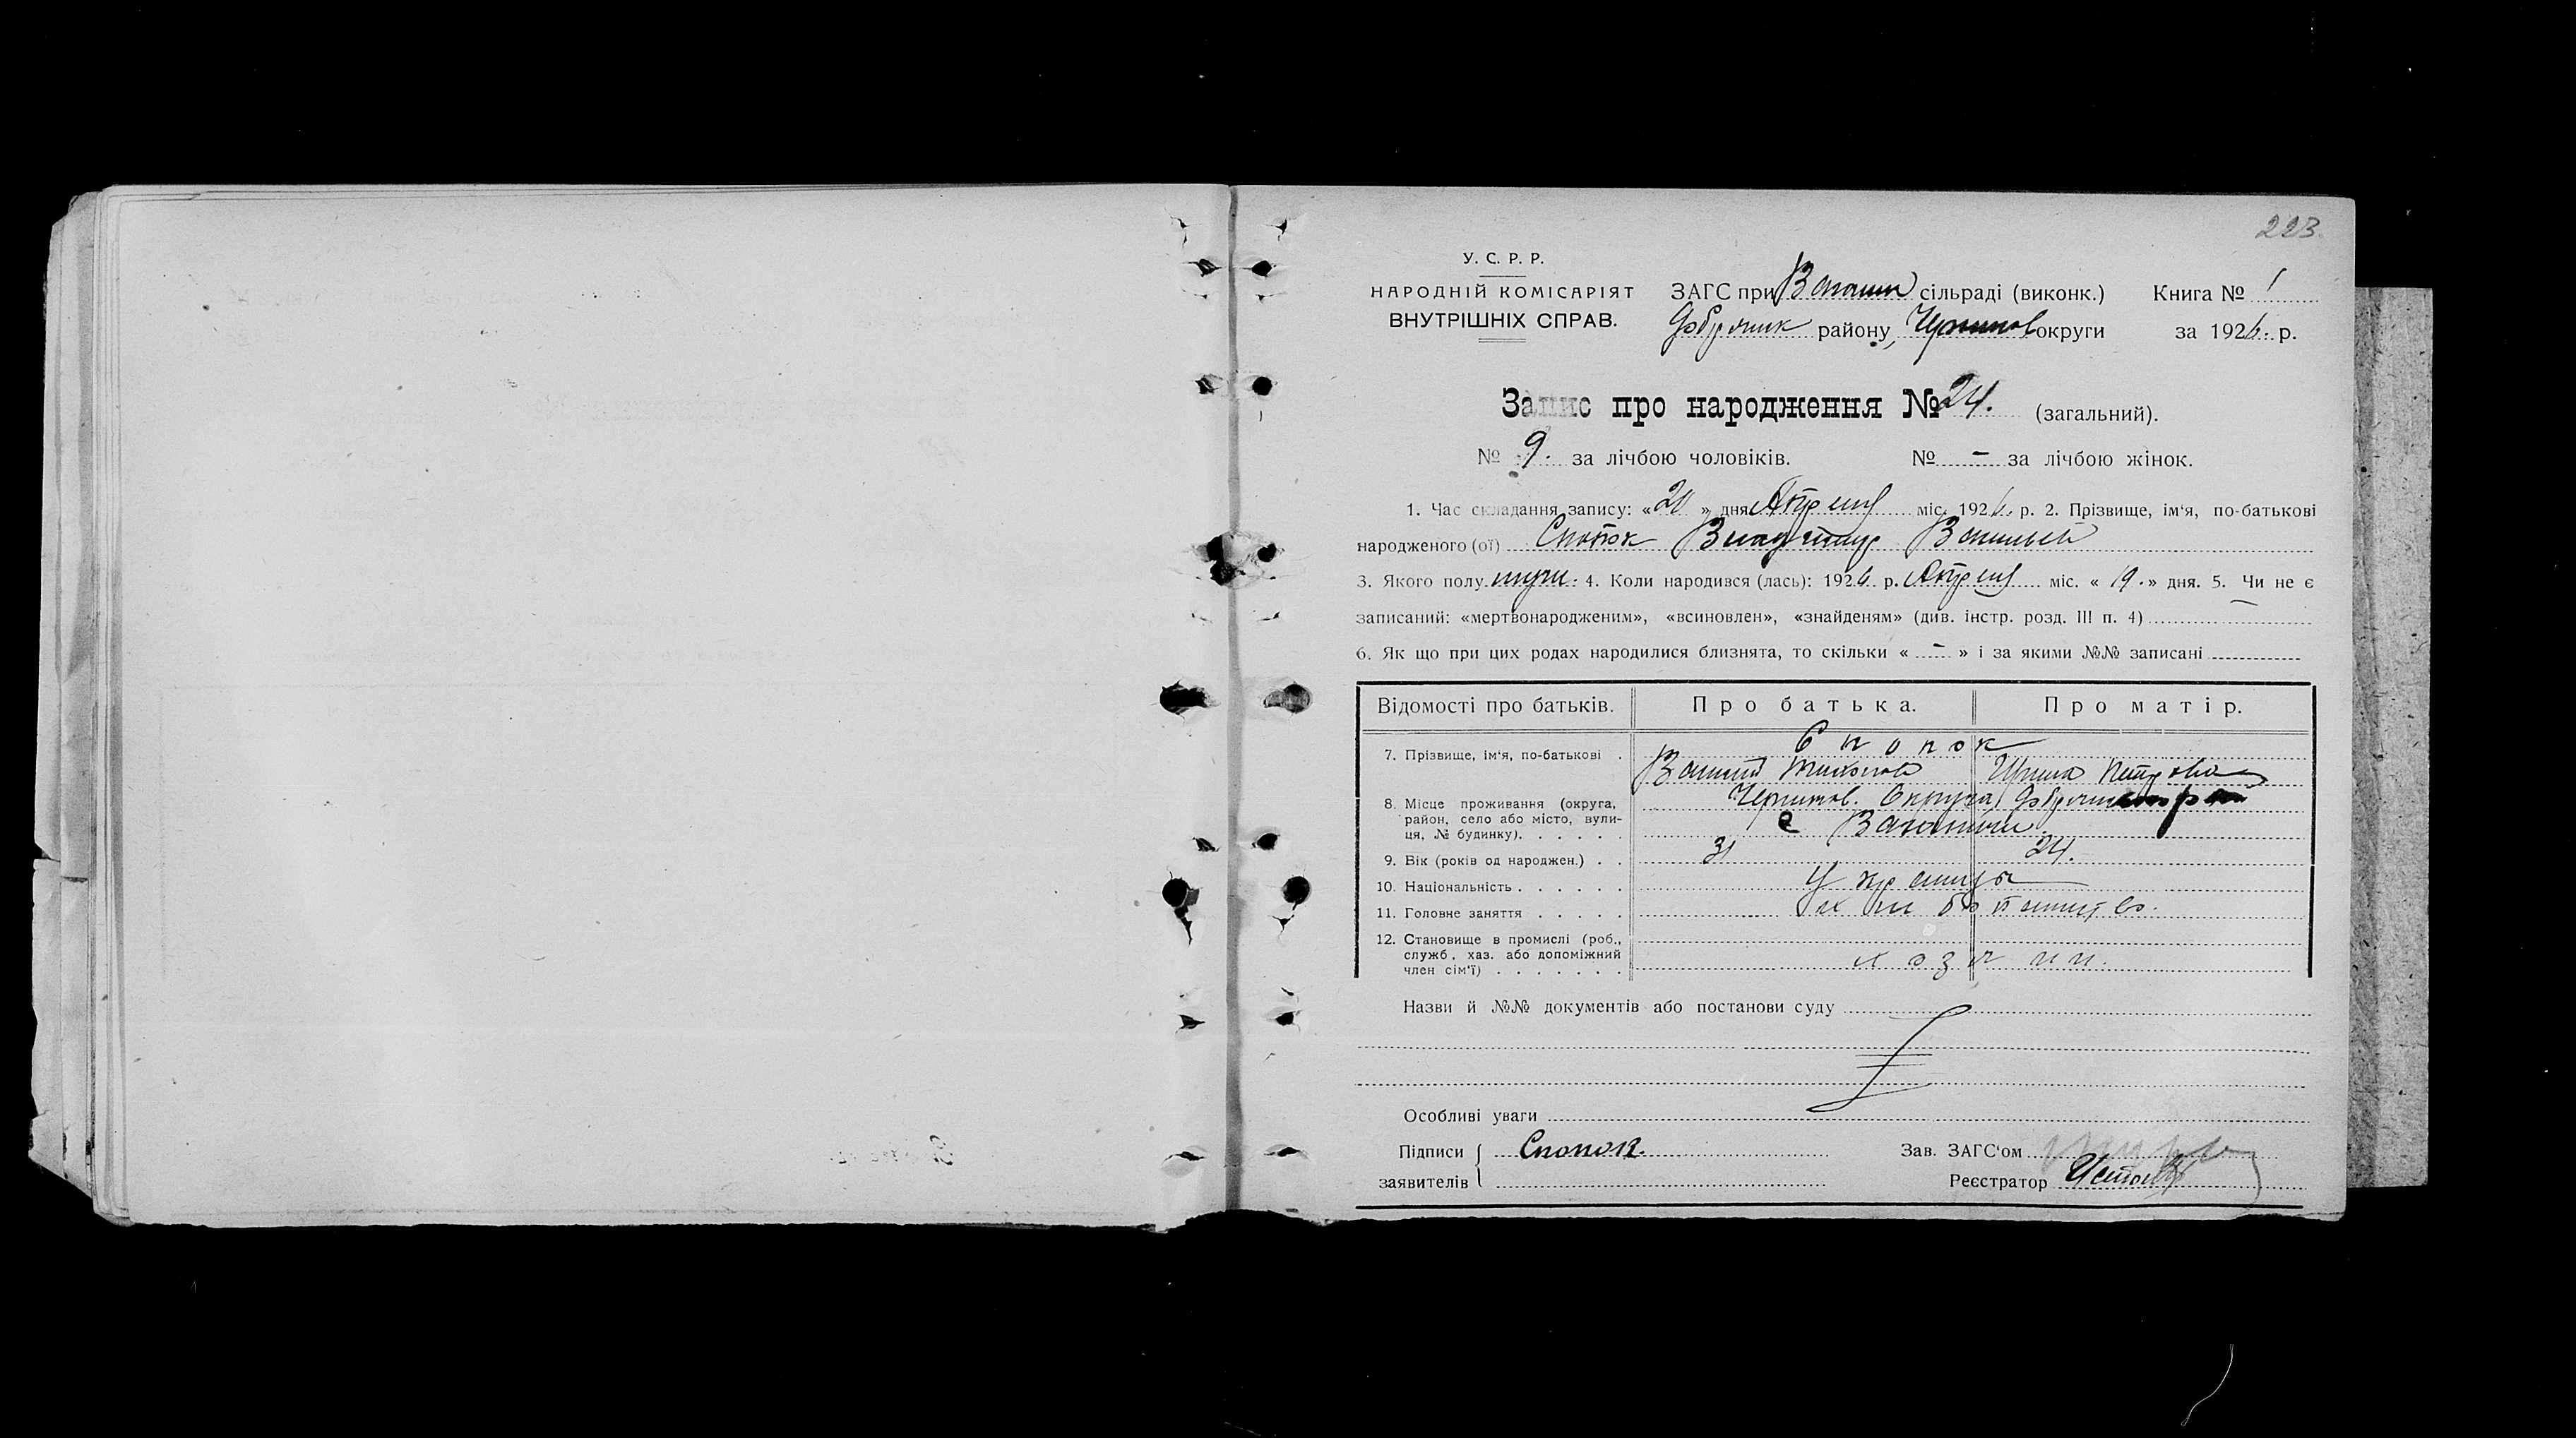 223
У. С. Р. Р.
НАРОДНІЙ КОМІСАРІЯТ
ВНУТРІШНІХ СПРАВ.
ЗАГС при сільраді (виконк.) Книга № 1
району, округи за 1926. р.
Запис про народження № 24. (загальний).
№ 9. за лічбою чоловіків. № - за лічбою жінок.
1. Час складання запису: «20» дня Апреля міс. 1926. р. 2. Прізвище, ім'я, по-батькові
народженого (ої) Снопок Владимир Васильев
3. Якого полу муж. 4. Коли народився (лась): 1926 р. Апреля міс. «19.» дня. 5. Чи не є
записаний: «мертвонародженим», «всиновлен», «знайденям» (див. інстр. розд. III п. 4) —
6. Як що при цих родах народилися близнята, то скільки « - » і за якими №№ записані
Відомості про батьків. Про батька. Про матір.
7. Прізвище, ім'я, по-батькові . Снопок
Василий Ирина Петровна
8. Місце проживання (округа, Округа
район, село або місто, вули-
ця, № будинку). . . . . . с
9. Вік (років од народжен.) . . 31 24.
10. Національність . . . . . .
11. Головне заняття . . . . .
12. Становище в промислі (роб.,
служб, хаз. або допоміжний
член сім'ї) . . . . . . .
Назви й №№ документів або постанови суду
Особливі уваги
Підписи Снопок. Зав. ЗАГС'ом
заявителів Реєстратор